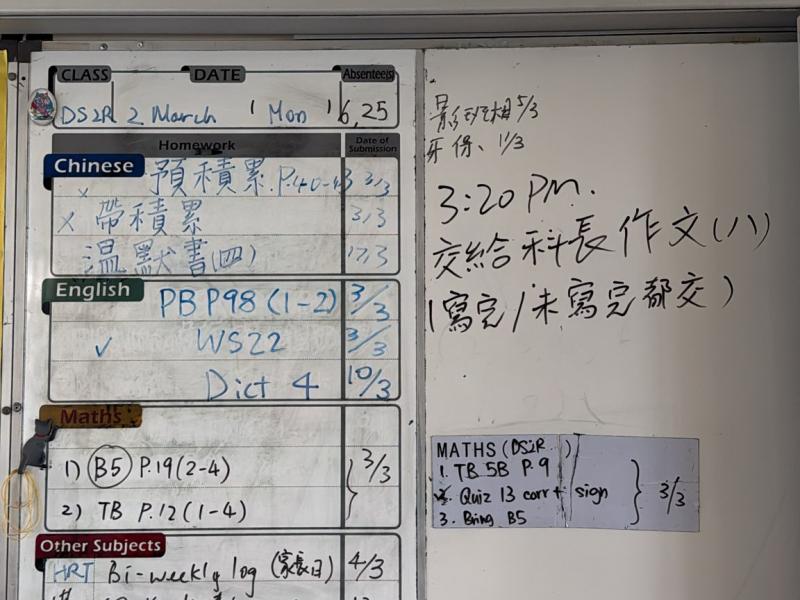 CLASS DATE Absentee(s)
DS2R 2 March (Mon) 6,25
Homework Date of Submission
Chinese
x 預積累 P.40-43 3/3
x 帶積累 3/3
溫默書(四) 17/3
English
PB P98 (1-2) 3/3
✓ WS22 3/3
Dict 4 10/3
Maths
1) B5 P.19(2-4) 3/3
2) TB P.12(1-4)
Other Subjects
HRT Bi-weekly log (家長日) 4/3
影班相 5/3
牙保、11/3
3:20 PM.
交給科長作文(八)
(寫完/未寫完都交)
MATHS (DS2R )
1. TB 5B P.9
2. Quiz 13 corr + sign 3/3
3. Bring B5